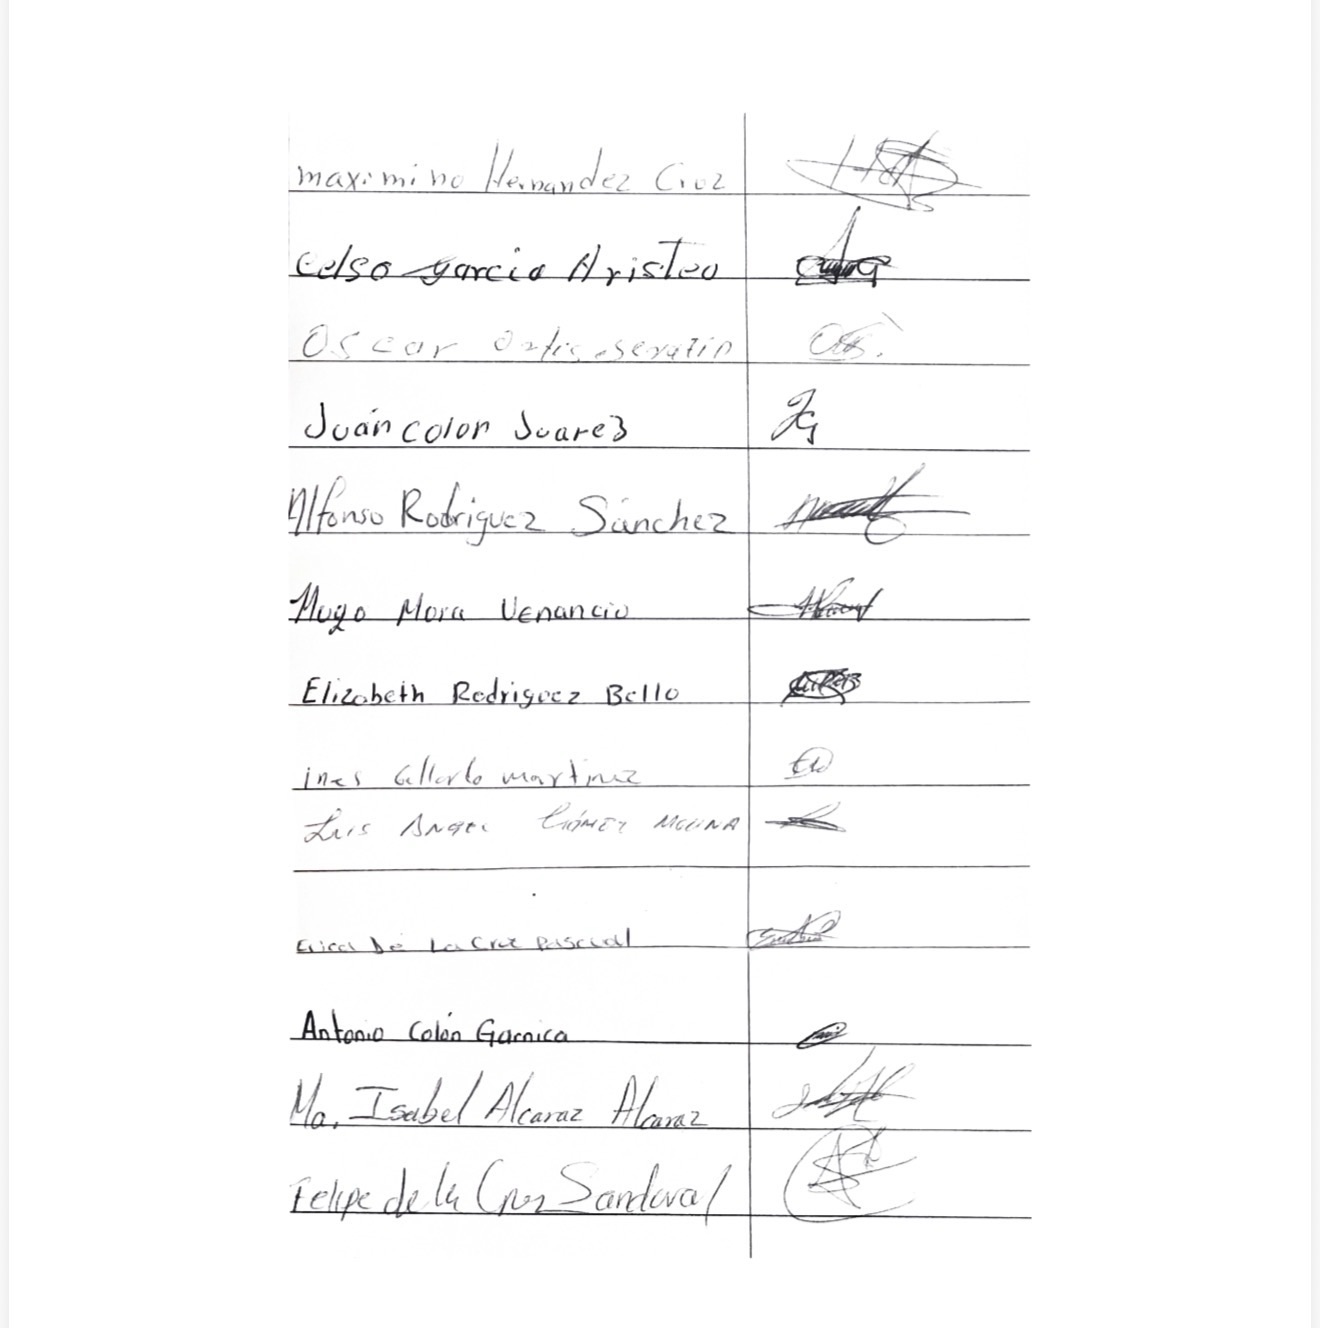 maximino Hernandez Cruz
Celso garcia Aristeo
Oscar Ortis serafin
Juán colon Juarez
Alfonso Rodriguez Sánchez
Hugo Mora Venancio
Elizabeth Rodriguez Bello
ines Gallardo martinez
Luis Angel Gómez Molina
Erica De La Cruz Pascual
Antonio Colón Garnica
Ma. Isabel Alcaraz Alcaraz
Felipe de la Cruz Sandoval